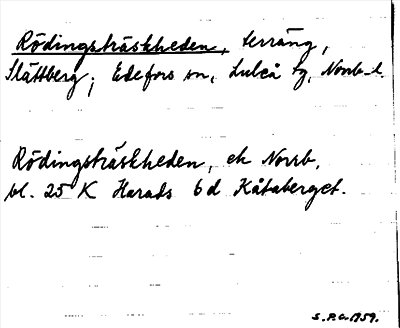 Rödingsträskheden, terräng,
Slättberg; Edefors sn, Luleå tg, Norrb. l.
Rödingsträskheden, ek Norrb,
bl. 25 K Harads 6d Kåtaberget.
S.P.G. 1959.